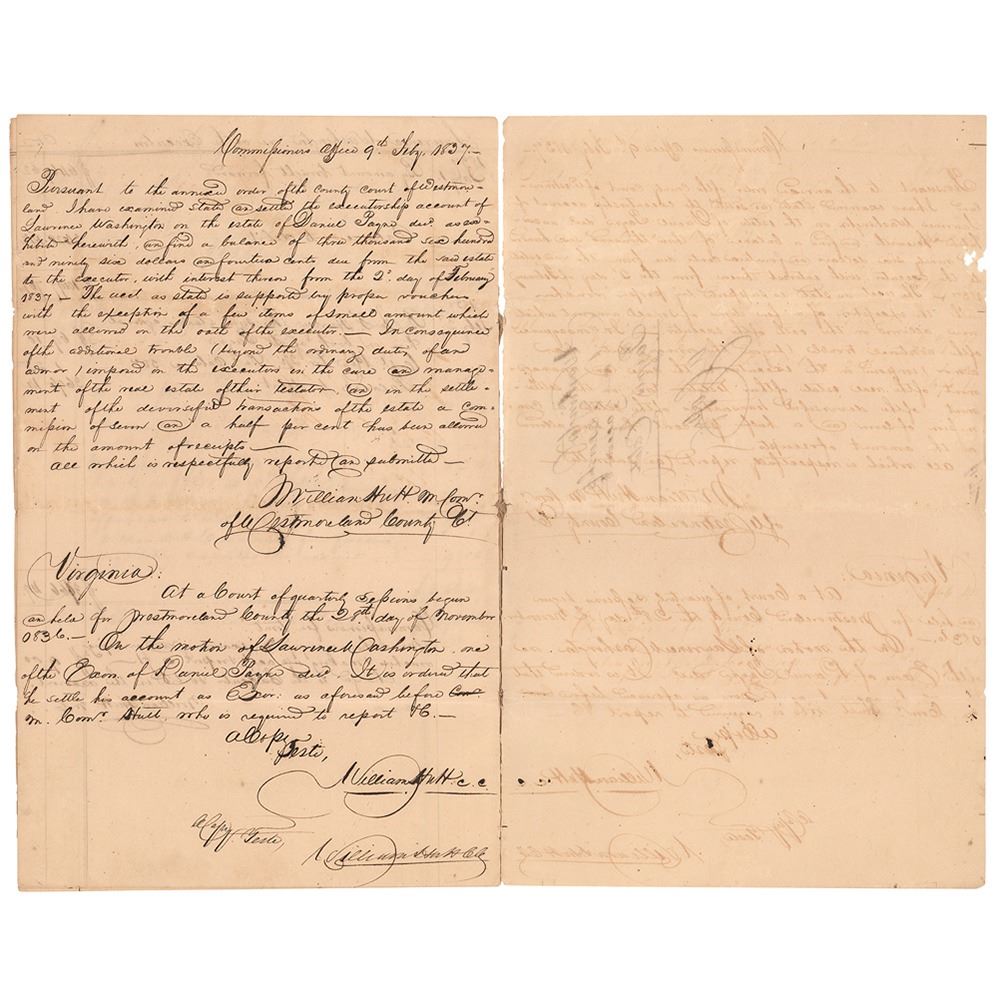 Commissioners office 9th Feby. 1837.—
Pursuant to the annexed order of the county court of Westmore-
land. I have examined stated and settled the executorship account of
Lawrence Washington on the estate of Daniel Payne decd. as ex-
hibited herewith, and find a balance of three thousand six hundred
and ninety six dollars and fourteen cents due from the said estate
to the executor, with interest thereon from the 2d. day of February
1837 — The acct. as stated is supported by proper vouchers
with the exception of a few items of small amount which
were allowed on the oath of the executor. — In consequence
of the additional trouble (beyond the ordinary duties of an
admor) imposed on the executors in the care and manage-
ment of the real estate of their testator, and in the settle-
ment of the diversified transactions of the estate a com-
mission of seven and a half per cent has been allowed
on the amount of receipts —
all which is respectfully reported and submitted —
William Hutt M. Comr.
of Westmoreland County Ct
Virginia:
At a Court of quarterly sessions begun
and held for Westmoreland County the 28th day of November
1836.— On the motion of Lawrence Washington, one
of the Exors. of Daniel Payne decd. It is ordered that
he settle his account as Exor: as aforesaid before Com.
M. Comr. Hutt, who is required to report &C.—
A Copy
Teste,
William Hutt c. c.
A Copy Teste
William Hutt